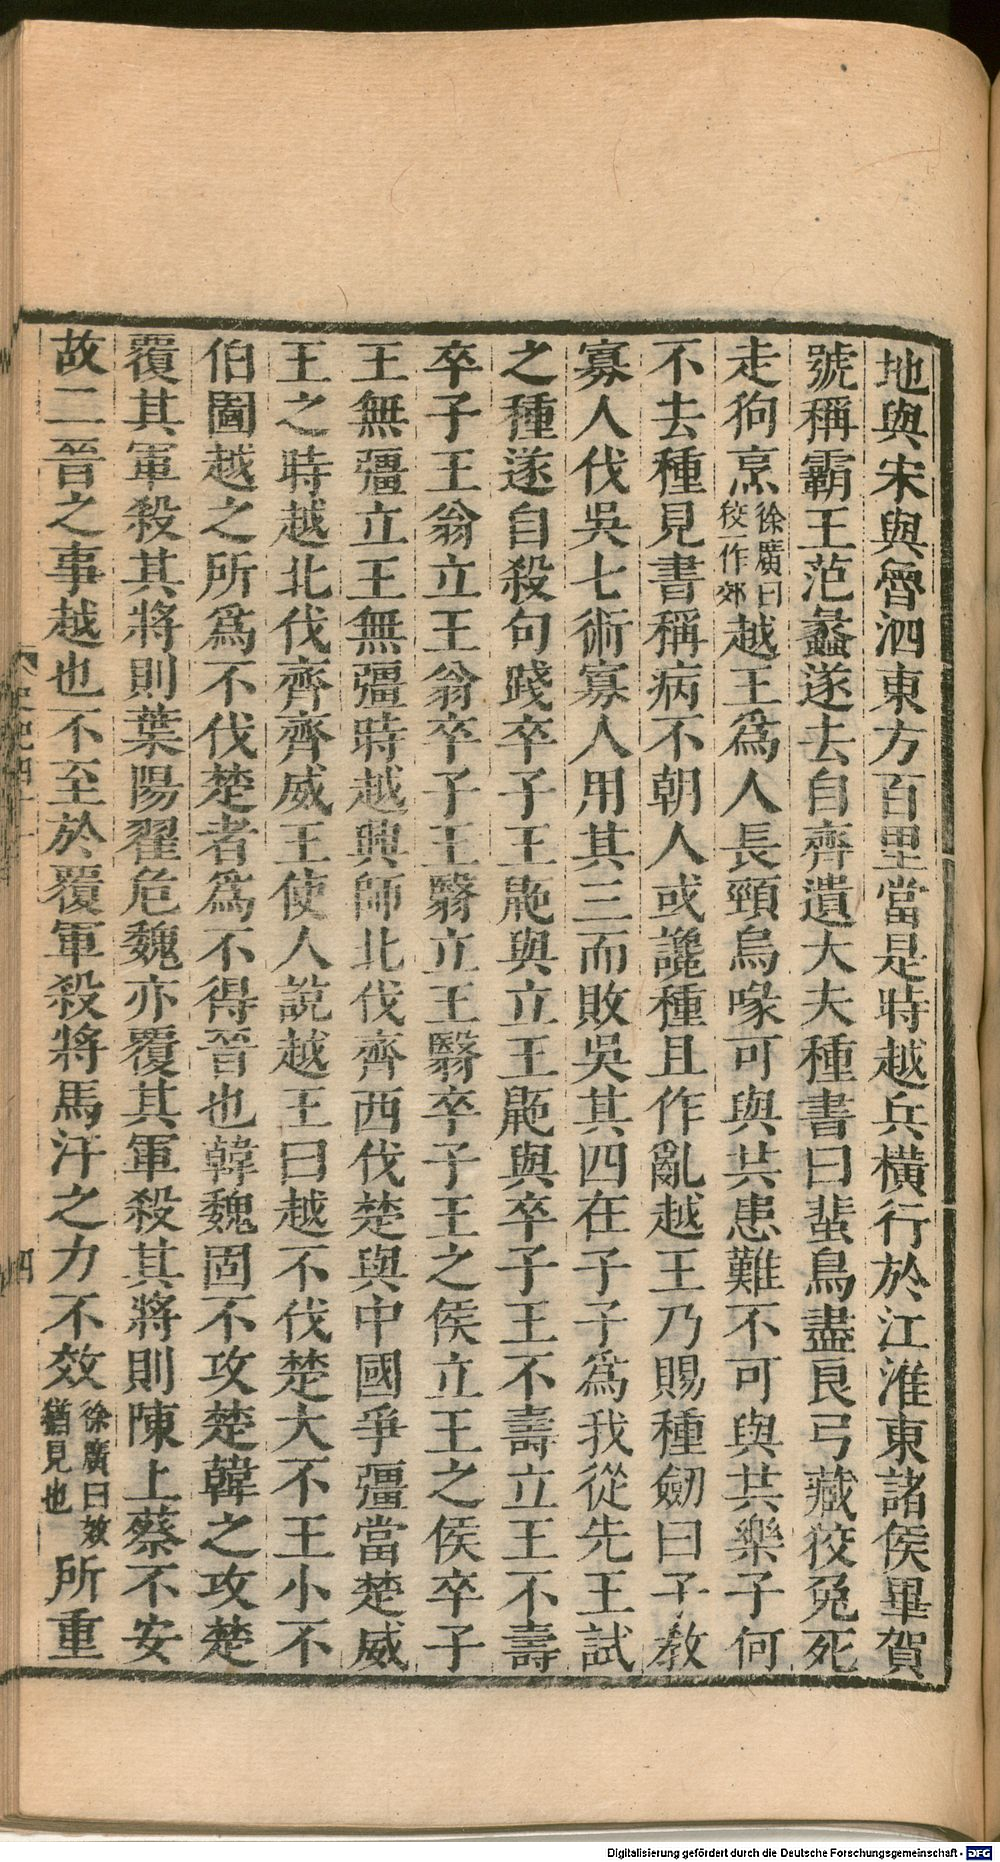 地與宋與魯泗東方百里當是時越兵橫行於江淮東諸侯畢賀
號稱霸王范蠡遂去自齊遺大夫種書曰蜚鳥盡良弓藏狡兔死
走狗烹徐廣曰狡一作郊越王爲人長頸烏喙可與共患難不可與共樂子何
不去種見書稱病不朝人或讒種且作亂越王乃賜種劒曰子教
寡人伐吳七術寡人用其三而敗吳其四在子子爲我從先王試
之種遂自殺句踐卒子王鼫與立王鼫與卒子王不壽立王不壽
卒子王翁立王翁卒子王翳立王翳卒子王之侯立王之侯卒子
王無彊立王無彊時越興師北伐齊西伐楚與中國爭彊當楚威
王之時越北伐齊齊威王使人說越王曰越不伐楚大不王小不
伯圖越之所爲不伐楚者爲不得晉也韓魏固不攻楚韓之攻楚
覆其軍殺其將則葉陽翟危魏亦覆其軍殺其將則陳上蔡不安
故二晉之事越也不至於覆軍殺將馬汗之力不效徐廣曰效猶見也所重
四
Digitalisierung gefördert durch die Deutsche Forschungsgemeinschaft - DFG